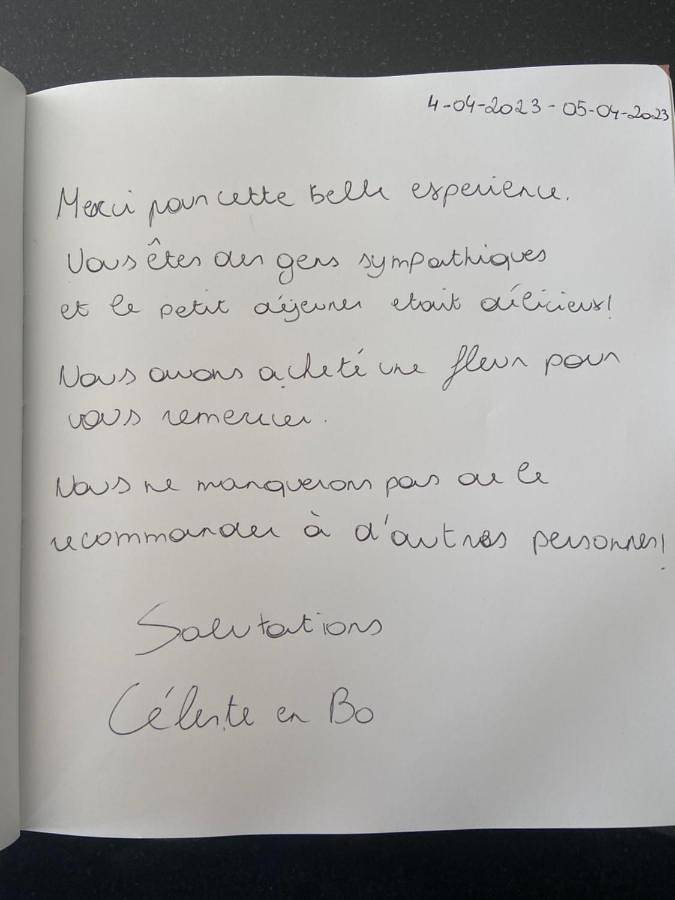 4-04-2023 - 05-04-2023
Merci pour cette belle experience.
Vous êtes des gens sympathiques
et le petit déjeuner etait délicieux!
Nous avons acheté une fleur pour
vous remercier.
Nous ne manquerons pas de le
recommander à d'autres personnes!
Salutations
Céleste en Bo